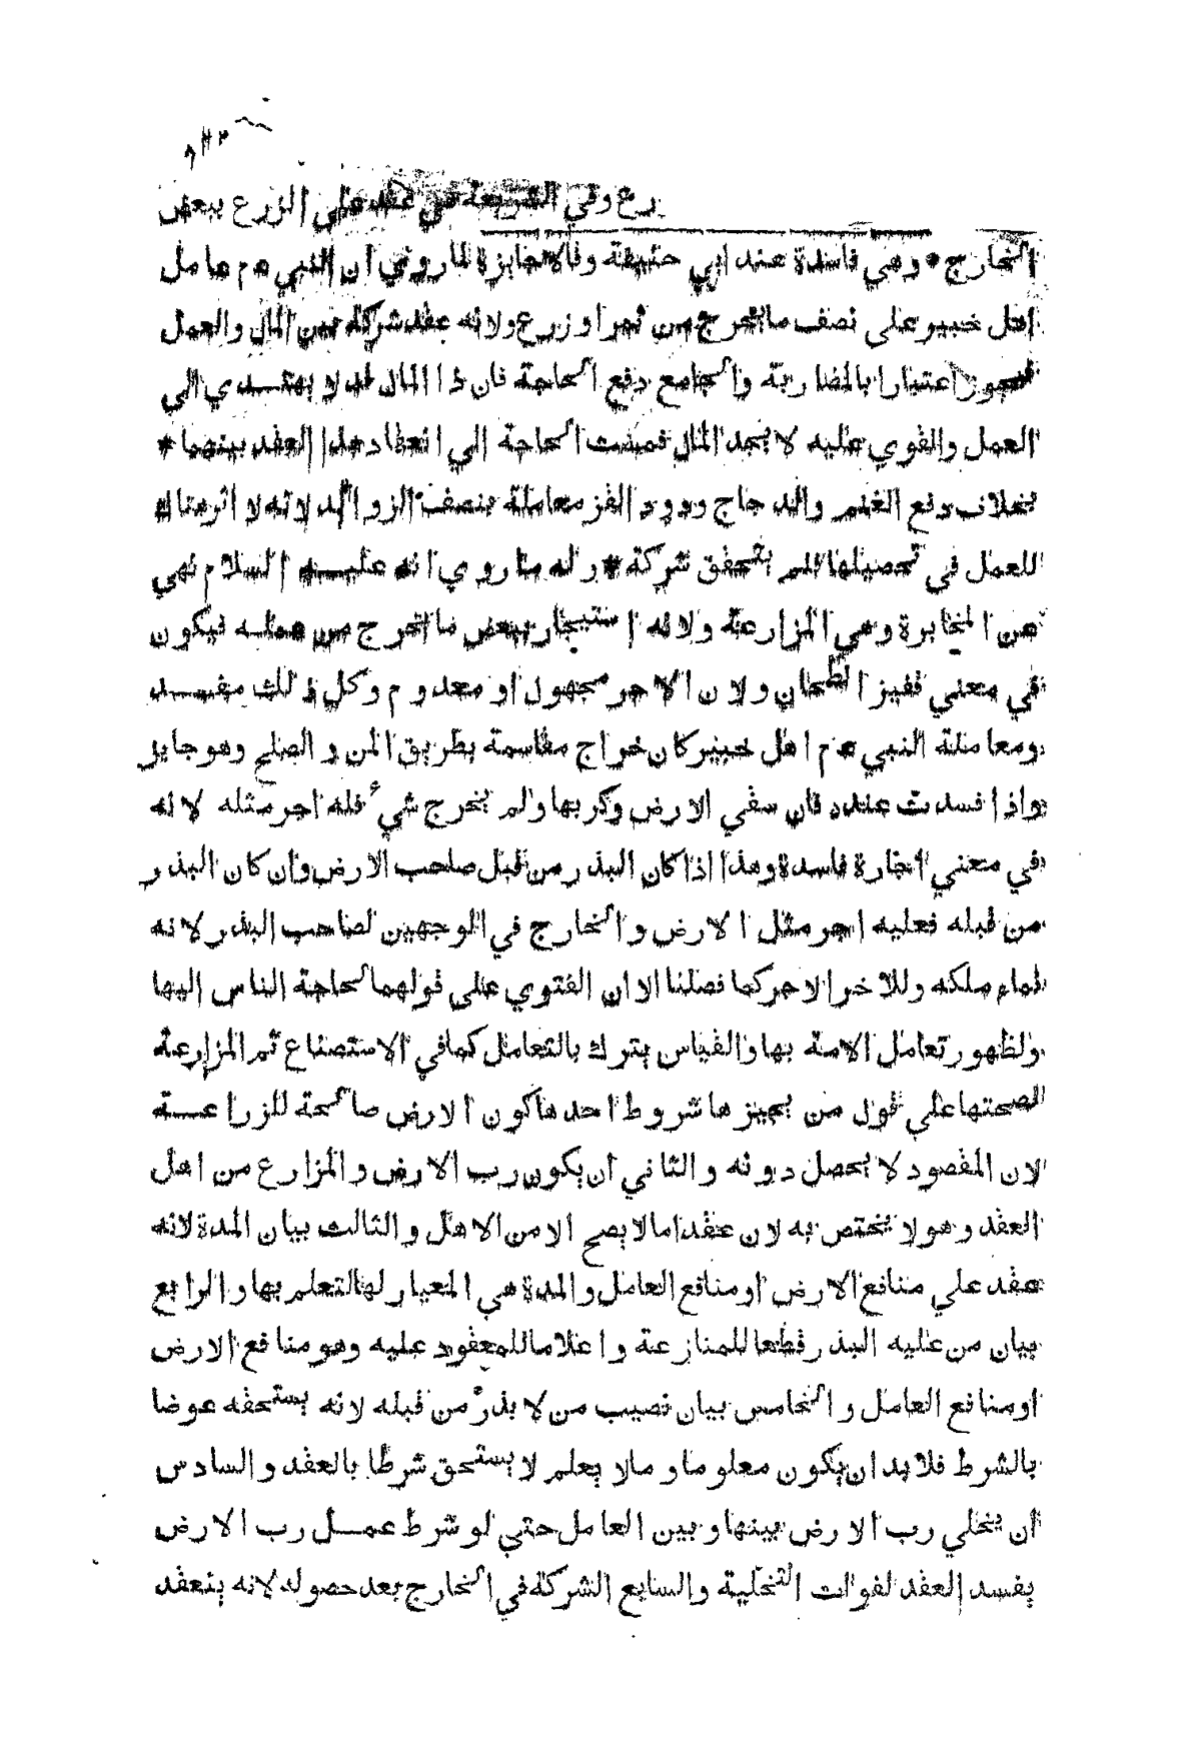 رع وفي الشريعة هي عقد علي الزرع ببعض
الخارج * وهي فاسدة عند ابي حنيفة وقالا جايزة لما روي ان النبي عم عامل
اهل خيبر علي نصف ما يخرج من ثمر او زرع ولانه عقد شركة بين المال والعمل
فيجوز اعتبارا بالمضاربة والجامع دفع الحاجة فان ذا المال قد لا يهتدي الي
العمل والقوي عليه لا يجد المال فمست الحاجة الي انعقاد هذا العقد بينهما *
بخلاف دفع الغنم والدجاج ودود القز معاملة بنصف الزوائد لانه لا اثر هناك
للعمل في تحصيلها فلم يتحقق شركة * وله ما روي انه عليه السلام نهي
عن المخابرة وهي المزارعة ولانه استيجار ببعض ما يخرج من عمله فيكون
في معني قفيز الطحان ولان الاجر مجهول او معدوم وكل ذلك مفسد
ومعاملة النبي عم اهل خيبر كان خراج مقاسمة بطريق المن والصلح وهو جايز
واذا فسدت عنده فان سقي الارض وكربها ولم يخرج شيء فله اجر مثله لانه
في معني اجارة فاسدة وهذا اذا كان البذر من قبل صاحب الارض وان كان البذر
من قبله فعليه اجر مثل الارض والخارج في الوجهين لصاحب البذر لانه
نماء ملكه وللاخر الاجر كما فصلنا الا ان الفتوي علي قولهما لحاجة الناس اليها
ولظهور تعامل الامة بها والقياس يترك بالتعامل كما في الاستصناع ثم المزارعة
لصحتها علي قول من يجيزها شروط احدها كون الارض صالحة للزراعة
لان المقصود لا يحصل دونه والثاني ان يكون رب الارض والمزارع من اهل
العقد وهو لا يختص به لان عقدا ما لا يصح الا من الاهل والثالث بيان المدة لانه
عقد علي منافع الارض او منافع العامل والمدة هي المعيار لها لتعلم بها والرابع
بيان من عليه البذر قطعا للمنازعة واعلاما للمعقود عليه وهو منافع الارض
او منافع العامل والخامس بيان نصيب من لا بذر من قبله لانه يستحقه عوضا
بالشرط فلا بد ان يكون معلوما وما لا يعلم لا يستحق شرطا بالعقد والسادس
ان يخلي رب الارض بينها وبين العامل حتي لو شرط عمل رب الارض
يفسد العقد لفوات التخلية والسابع الشركة في الخارج بعد حصوله لانه ينعقد